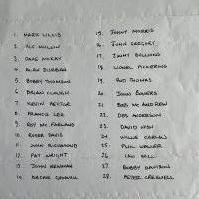 1. MARK WALLIS
2. ALF WILLIN
3. DAVE MACKAY
4. ALAN DURBAN
5. BOBBY THOMSON
6. BRIAN CLOUGH
7. KEVIN HECTOR
8. FRANCIS LEE
9. ROY McFARLAND
10. ROGER DAVIS
11. JOHN RICHMOND
12. PAT WRIGHT
13. JOHN NEWMAN
14. ARCHIE GEMMILL
15. JOHNY MORRIS
16. JOHN GREGORY
17. JIMMY BULLIONS
18. LIONEL PICKERING
19. ROD THOMAS
20. JOHN BOWERS
21. BOB McANDREW
22. DES ANDERSON
23. DAVID NISH
24. WILLIE CARLIN
25. PHIL WALLER
26. IAN HALL
27. BOBBY DAVISON
28. PETER CRESWELL